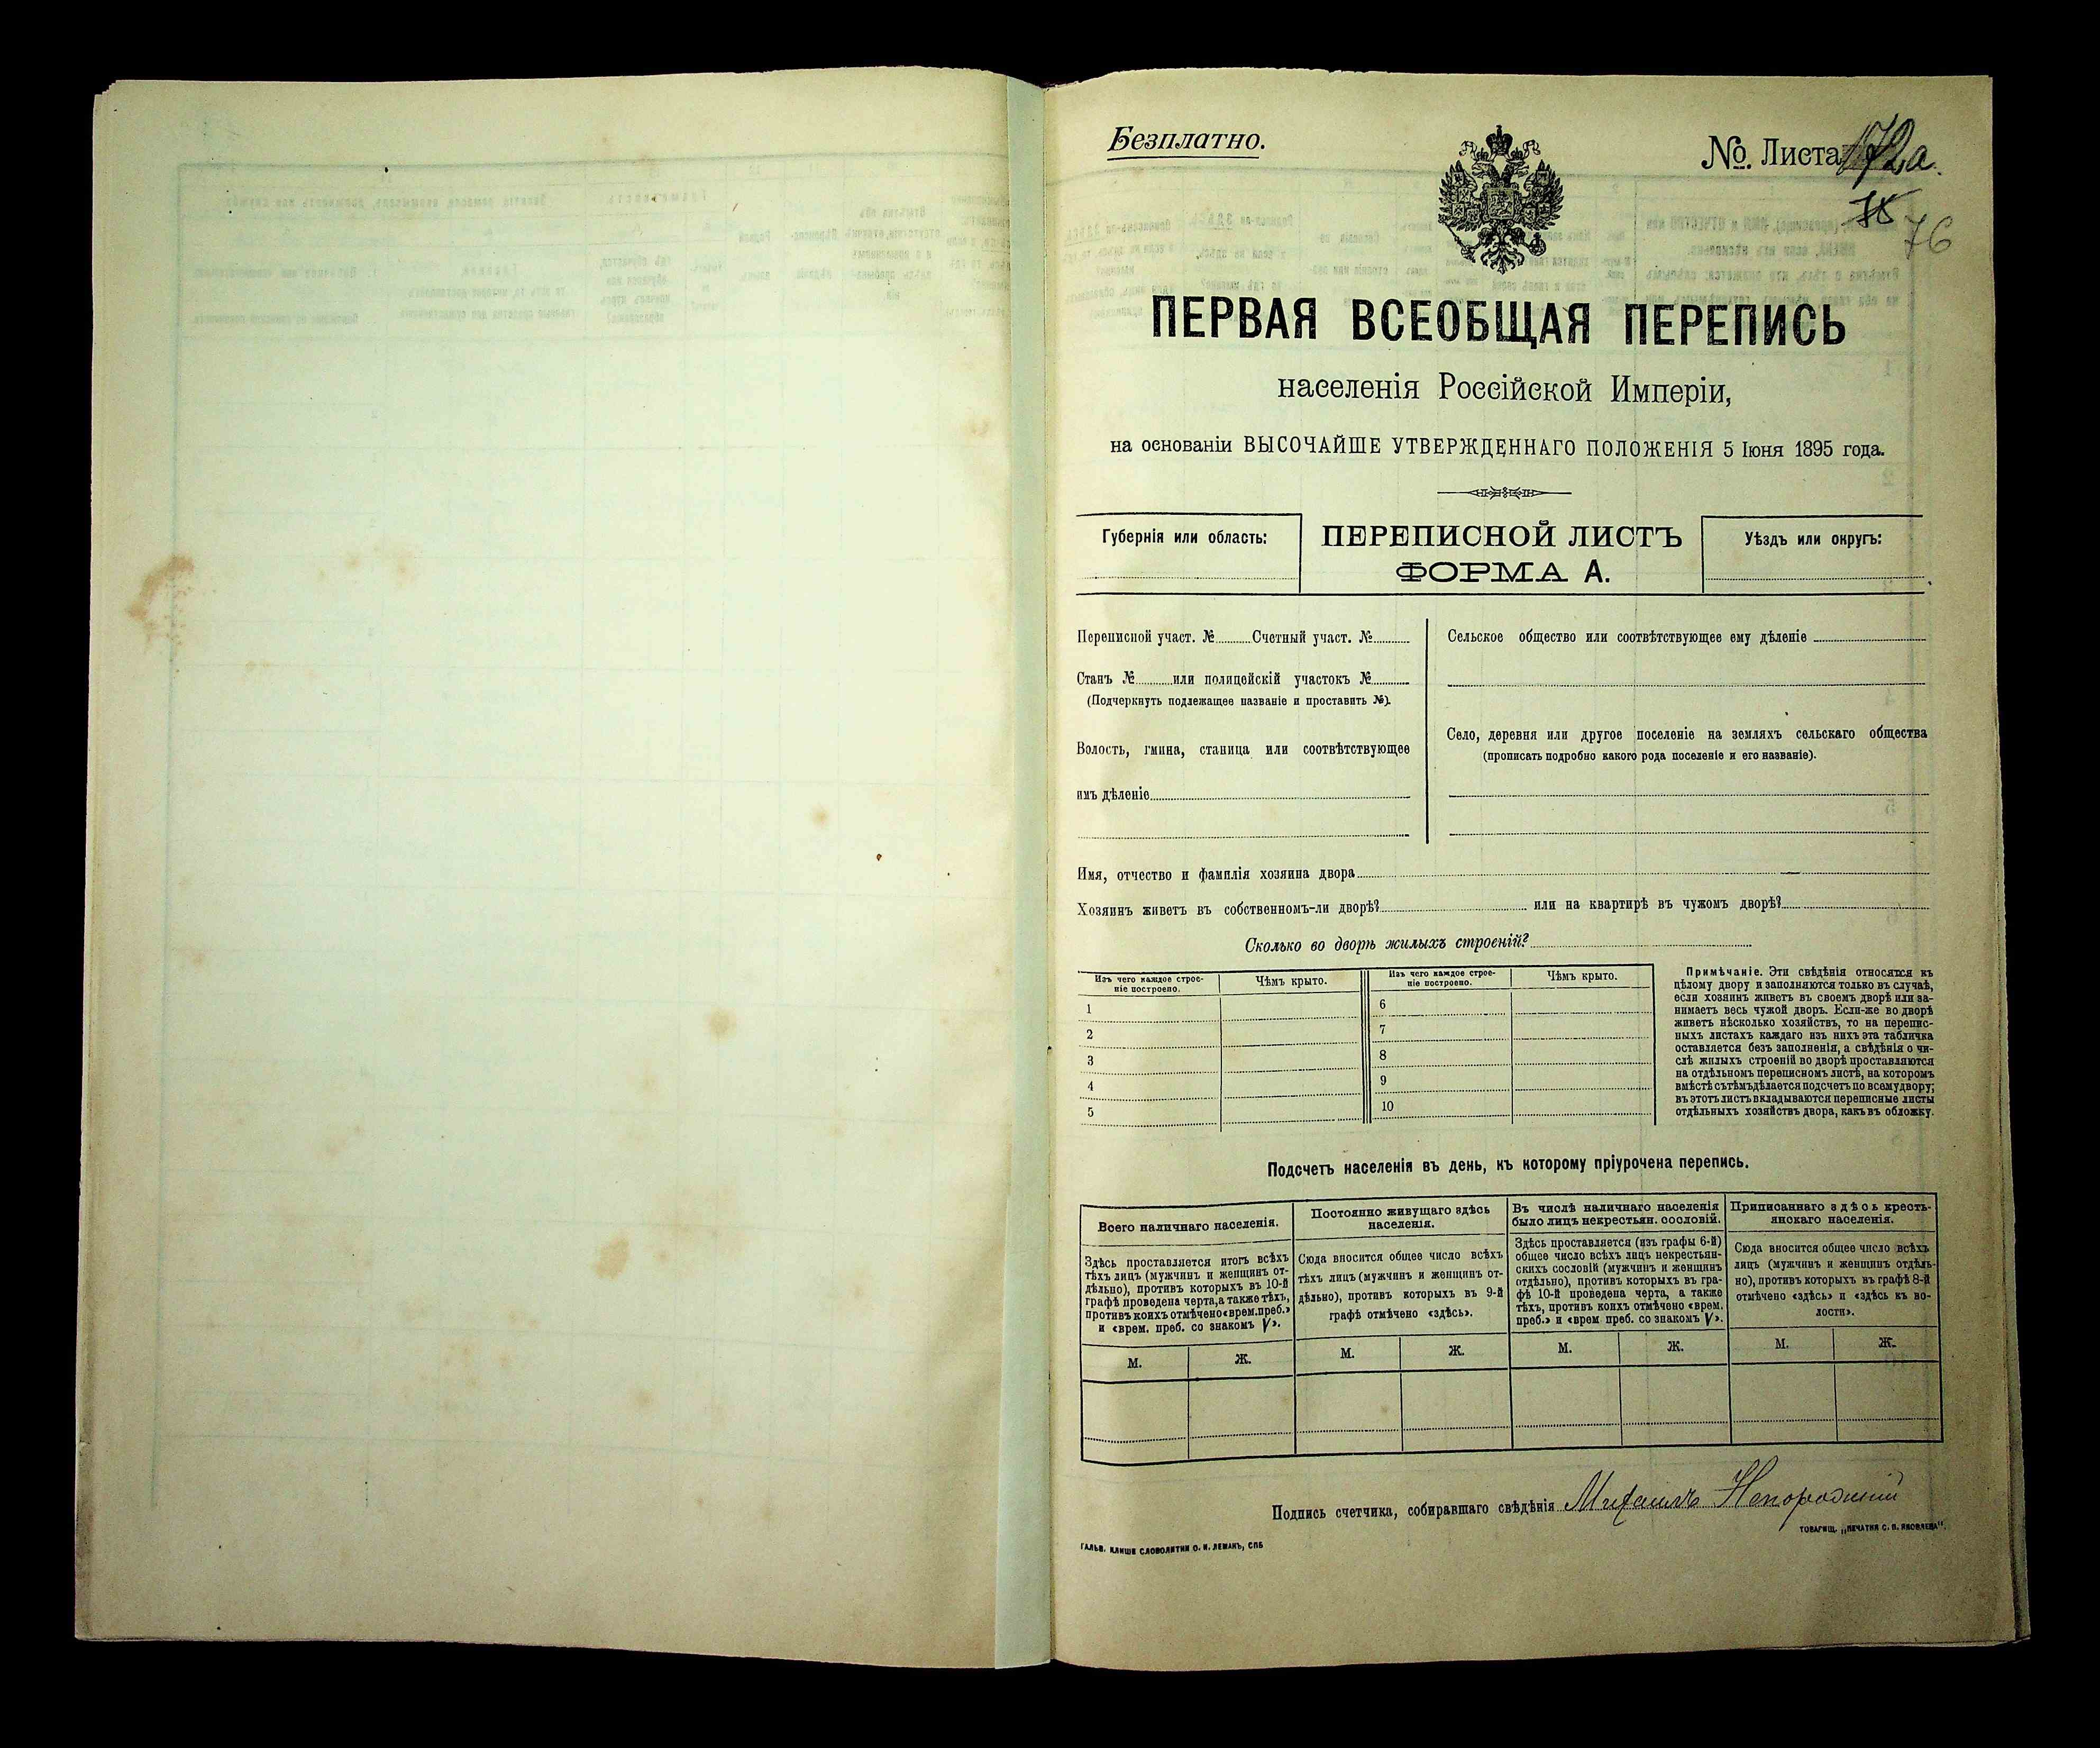 Безплатно.
№ Листа 172а.
76
ПЕРВАЯ ВСЕОБЩАЯ ПЕРЕПИСЬ
населенія Россійской Имперіи,
на основаніи ВЫСОЧАЙШЕ УТВЕРЖДЕННАГО ПОЛОЖЕНІЯ 5 Іюня 1895 года.
Губернія или область:
ПЕРЕПИСНОЙ ЛИСТЪ
ФОРМА А.
Уѣздъ или округъ:
Переписной участ. № Счетный участ. №
Станъ № или полицейскій участокъ №
(Подчеркнуть подлежащее названіе и проставить №).
Волость, гмина, станица или соотвѣтствующее
имъ дѣленіе
Сельское общество или соотвѣтствующее ему дѣленіе
Село, деревня или другое поселеніе на земляхъ сельскаго общества
(прописать подробно какого рода поселеніе и его названіе).
Имя, отчество и фамилія хозяина двора
Хозяинъ живетъ въ собственномъ-ли дворѣ? или на квартирѣ въ чужомъ дворѣ?
Сколько во дворѣ жилыхъ строеній?
Изъ чего каждое строе-
ніе построено.
Чѣмъ крыто.
Изъ чего каждое строе-
ніе построено.
Чѣмъ крыто.
1
2
3
4
5
6
7
8
9
10
Примѣчаніе. Эти свѣдѣнія относятся къ
цѣлому двору и заполняются только въ случаѣ,
если хозяинъ живетъ въ своемъ дворѣ или за-
нимаетъ весь чужой дворъ. Если-же во дворѣ
живетъ нѣсколько хозяйствъ, то на перепис-
ныхъ листахъ каждаго изъ нихъ эта табличка
оставляется безъ заполненія, а свѣдѣнія о чи-
слѣ жилыхъ строеній во дворѣ проставляются
на отдѣльномъ переписномъ листѣ, на которомъ
вмѣстѣ съ тѣмъ дѣлается подсчетъ по всему двору;
въ этотъ листъ вкладываются переписные листы
отдѣльныхъ хозяйствъ двора, какъ въ обложку.
Подсчетъ населенія въ день, къ которому пріурочена перепись.
Всего наличнаго населенія.
Здѣсь проставляется итогъ всѣхъ
тѣхъ лицъ (мужчинъ и женщинъ от-
дѣльно), противъ которыхъ въ 10-й
графѣ проведена черта, а также тѣхъ,
противъ коихъ отмѣчено «врем. преб.»
и «врем. преб. со знакомъ V».
М. Ж.
Постоянно живущаго здѣсь
населенія.
Сюда вносится общее число всѣхъ
тѣхъ лицъ (мужчинъ и женщинъ от-
дѣльно), противъ которыхъ въ 9-й
графѣ отмѣчено «здѣсь».
М. Ж.
Въ числѣ наличнаго населенія
было лицъ некрестьян. сословій.
Здѣсь проставляется (изъ графы 6-й)
общее число всѣхъ лицъ некрестьян-
скихъ сословій (мужчинъ и женщинъ
отдѣльно), противъ которыхъ въ гра-
фѣ 10-й проведена черта, а также
тѣхъ, противъ коихъ отмѣчено «врем.
преб.» и «врем. преб. со знакомъ V».
М. Ж.
Приписаннаго здѣсь кресть-
янскаго населенія.
Сюда вносится общее число всѣхъ
лицъ (мужчинъ и женщинъ отдѣль-
но), противъ которыхъ въ графѣ 8-й
отмѣчено «здѣсь» и «здѣсь къ во-
лости».
М. Ж.
Подпись счетчика, собиравшаго свѣдѣнія Михаилъ
ТОВАРИЩ. „ПЕЧАТНЯ С. П. ЯКОВЛЕВА“.
ГАЛЬВ. КЛИШЕ СЛОВОЛИТНИ О. И. ЛЕМАНЪ, СПБ